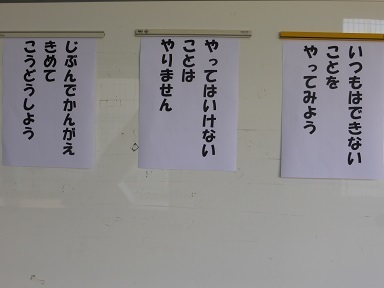 いつもはできない
ことを
やってみよう
やってはいけない
ことは
やりません
じぶんでかんがえ
きめて
こうどうしよう